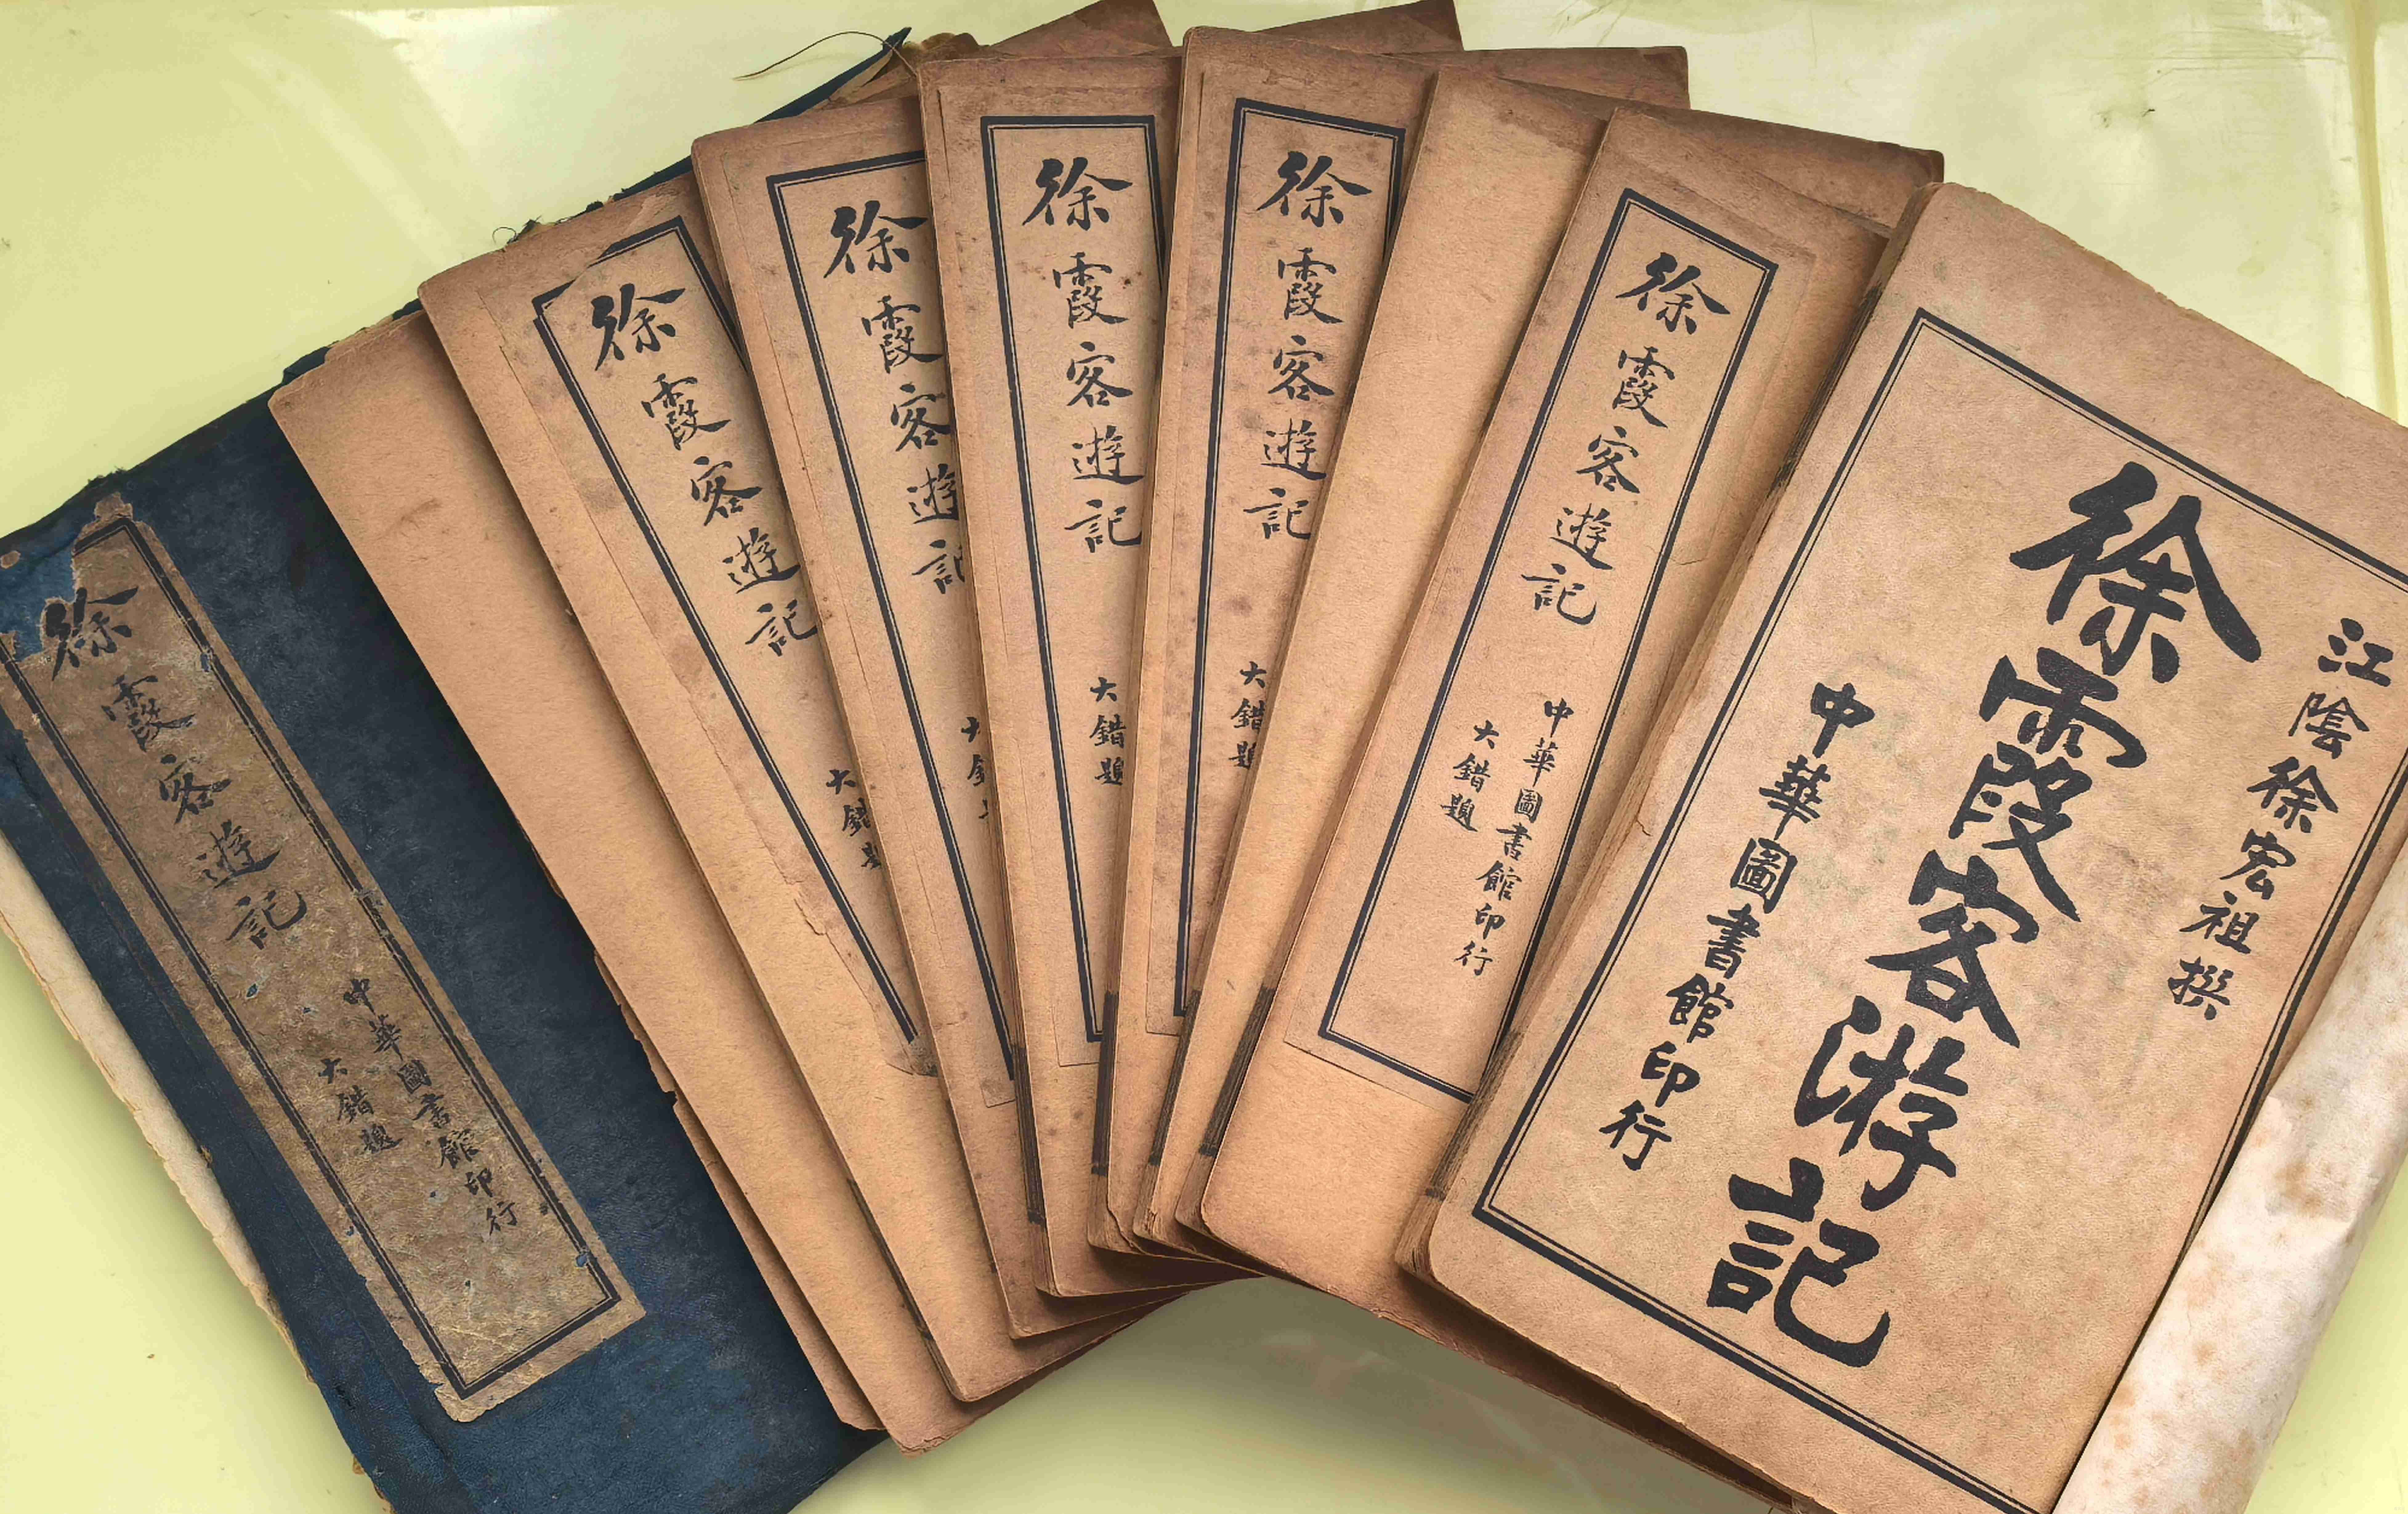 徐霞客遊記
中華圖書館印行
大錯題
徐霞客遊記
大錯
徐霞客遊記
大
徐霞客遊記
大錯題
徐霞客遊記
大錯題
徐霞客遊記
中華圖書館印行
大錯題
江陰徐宏祖撰
徐霞客游記
中華圖書館印行